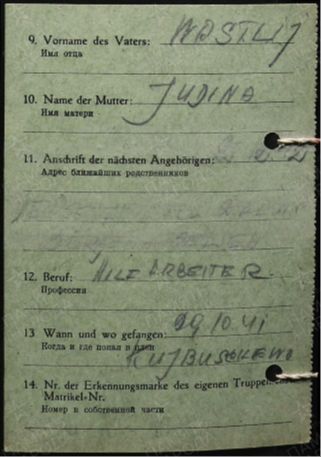 9. Vorname des Vaters: WASTLIJ
Имя отца
10. Name der Mutter: JUDINA
Имя матери
11. Anschrift der nächsten Angehörigen:
Адрес ближайших родственников
12. Beruf: HILFARBEITER.
Профессия
13 Wann und wo gefangen: 09.10.41
Когда и где попал в плен
KUJBUSCHEWO
14. Nr. der Erkennungsmarke des eigenen
Matrikel-Nr.
Номер в собственной части